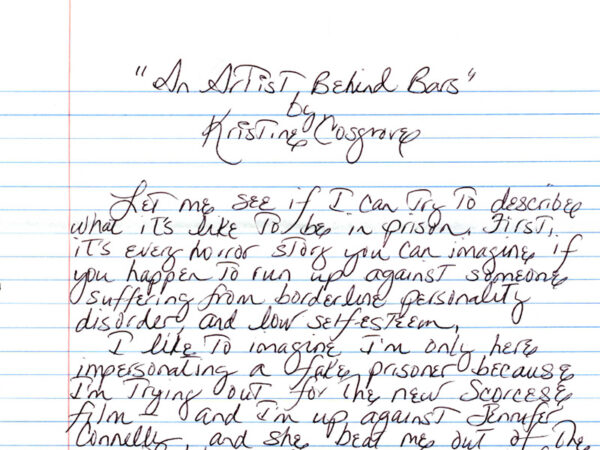 "An Artist, Behind Bars"
by
Kristine Cosgrove
Let me see if I can try to describe
what it's like to be in prison. First,
it's every horror story you can imagine if
you happen to run up against someone
suffering from borderline personality
disorder, and low selfesteem.
I like to imagine I'm only here
impersonating a fake prisoner because
I'm trying out for the new Scorcese
film - and I'm up against Jennifer
Connelly, and she beat me out of the